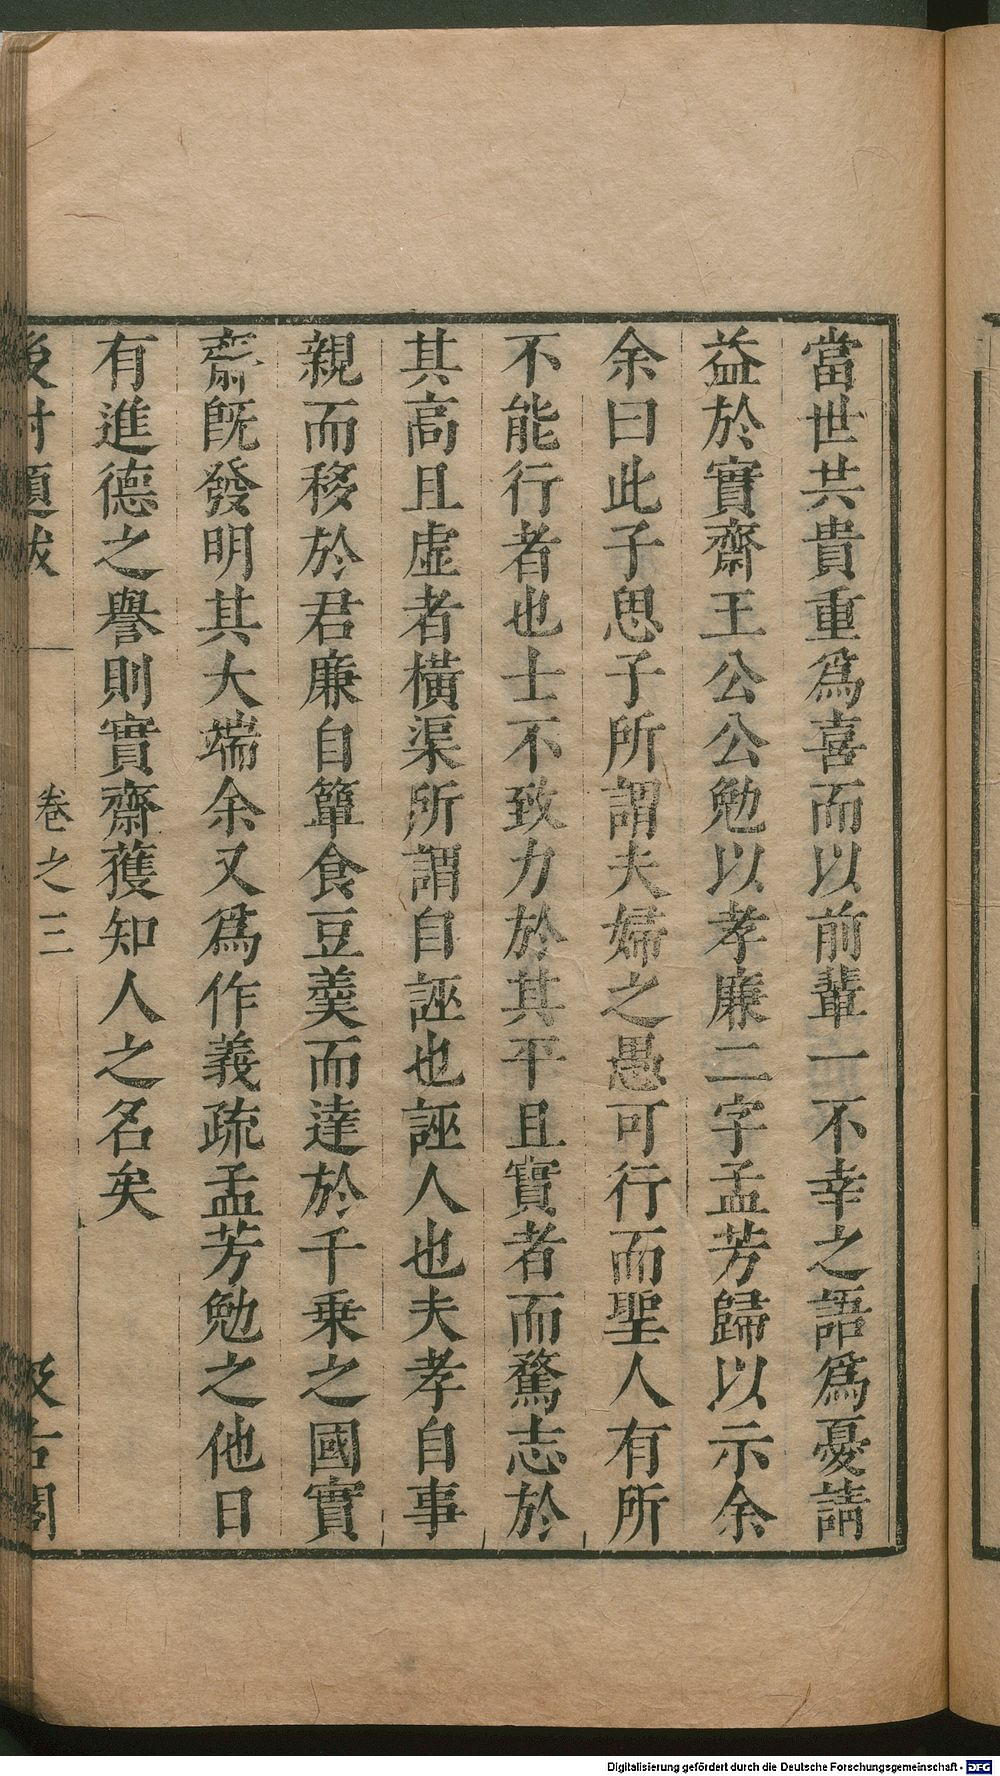 當世共貴重爲喜而以前輩一不幸之語爲憂請
益於實齋王公公勉以孝廉二字孟芳歸以示余
余曰此子思子所謂夫婦之愚可行而聖人有所
不能行者也士不致力於其平且實者而騖志於
其高且虛者橫渠所謂自誣也誣人也夫孝自事
親而移於君廉自簞食豆羹而達於千乗之國實
齋旣發明其大端余又爲作義疏孟芳勉之他日
有進德之譽則實齋蒦知人之名矣
後村題跋
卷之三
汲古閣
Digitalisierung gefördert durch die Deutsche Forschungsgemeinschaft - DFG